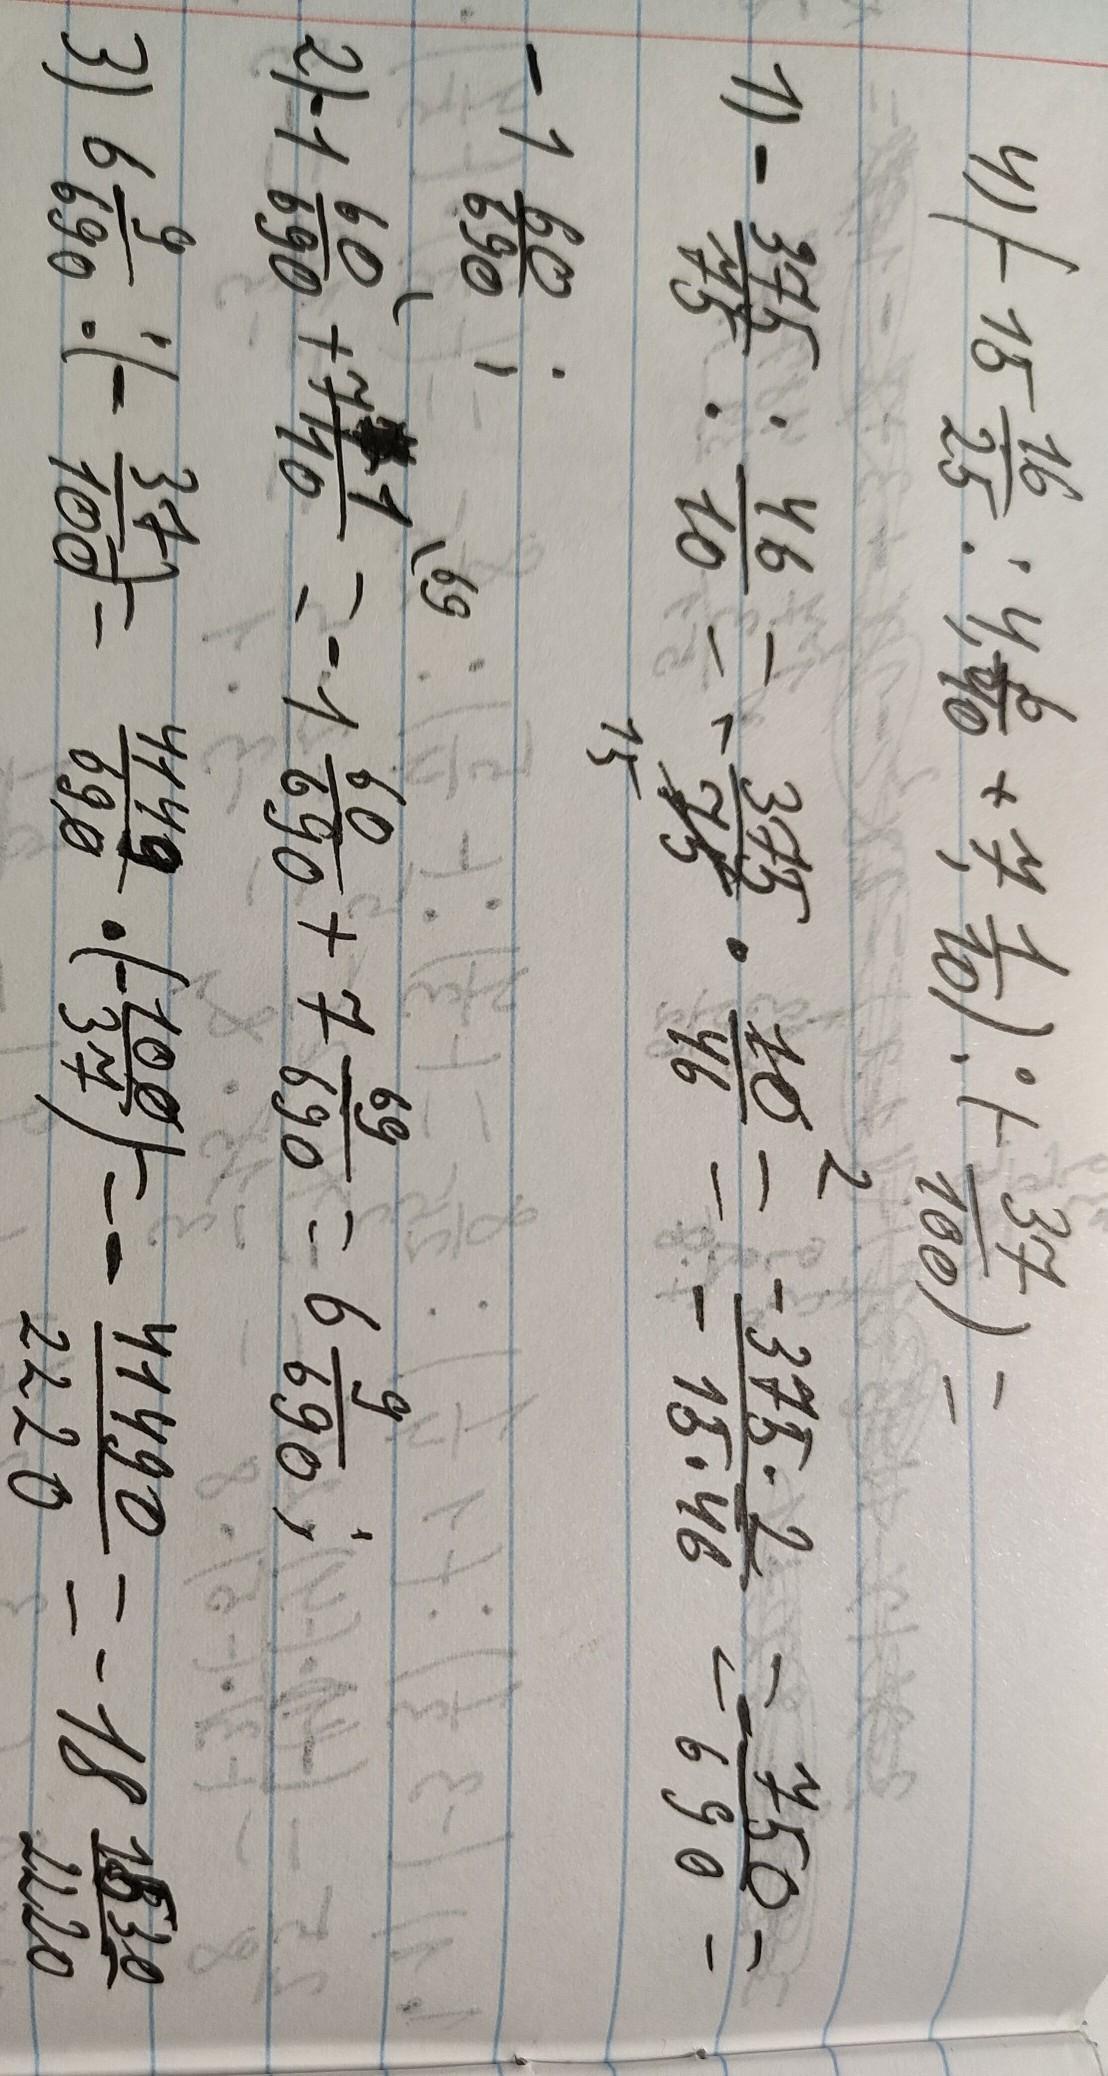 4) (-15 16/25 : 4, 6/10 + 7, 1/10) : (- 37/100) =
1) - 375/75 : 46/10 = - 375/75 · 10/46 = - 375·2/15·46 = - 750/690 =
15 2
- 1 60/690 ;
2) -1 60/690 + 7 1/10 \69 = -1 60/690 + 7 69/690 = 6 9/690 ;
3) 6 9/690 : (- 37/100) = 4149/690 · (- 100/37) = - 41490/2220 = - 18 1530/2220